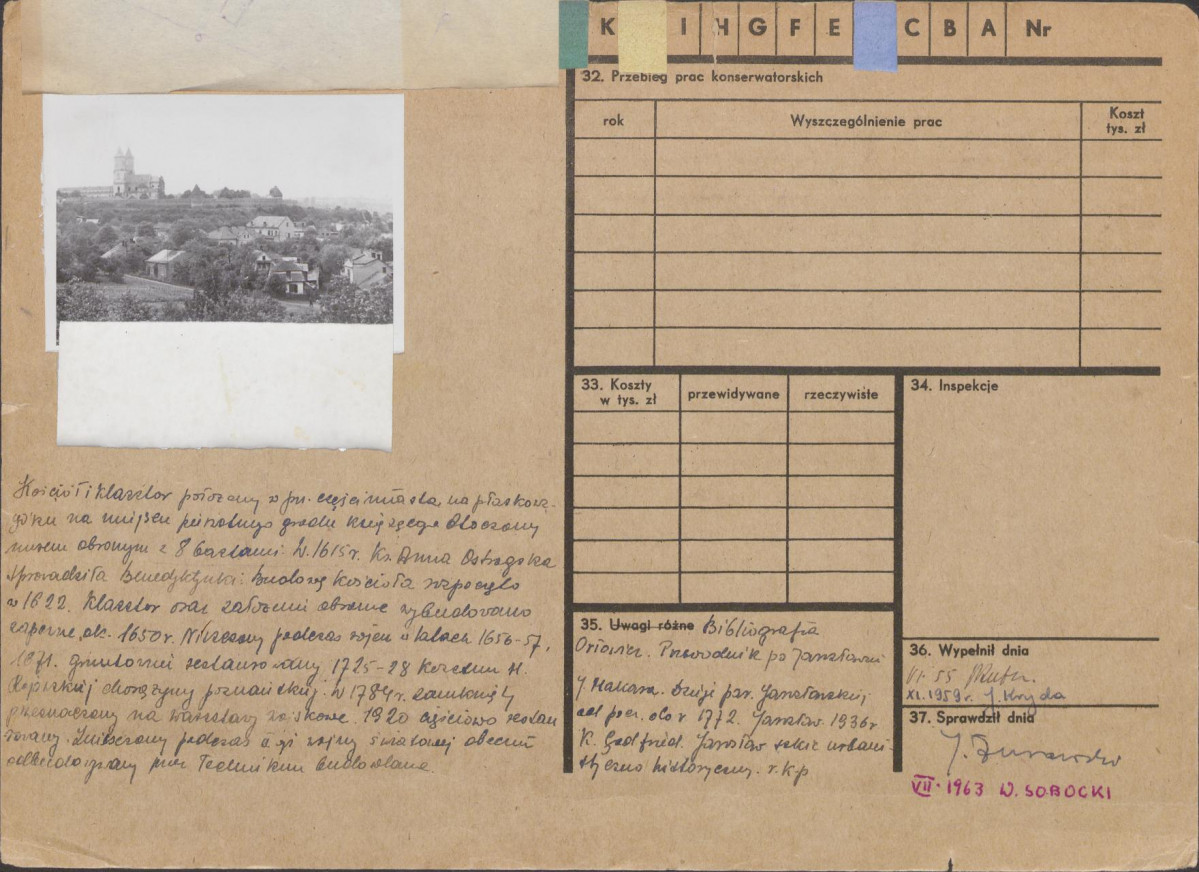 K I H G F E C B A Nr
32. Przebieg prac konserwatorskich
rok Wyszczególnienie prac Koszt tys. zł
33. Koszty w tys. zł przewidywane rzeczywiste
34. Inspekcje
Kościół i klasztor położony w pn. części miasta, na płaskowzgórzu
na miejscu pierwotnego grodu książęcego. Otoczony
murem obronnym z 8 basztami. W 1615 r. Ks. Anna Ostrogska
sprowadziła Benedyktynki. Budowę kościoła rozpoczęto
w 1622. Klasztor oraz założenie obronne wybudowano
zapewne ok. 1650 r. Niszczony podczas wojen w latach 1656-57,
gruntownie restaurowany 1725-28 kosztem H.
chorążyny poznańskiej. W 1784 r. zamknięty
przeznaczony na warsztaty wojskowe. 1920 częściowo restau
rowany. Zniszczony podczas II-giej wojny światowej obecnie
odbudowywany przez Technikum Budowlane.
35. Uwagi różne Bibliografia
Orłowicz. Przewodnik po Jarosławiu
J. Makara. Dzieje par. Jarosławskiej
od pocz. do r. 1772. Jarosław 1936 r
K. Gottfried. Jarosław szkic urbani-
styczno historyczny. rkp
36. Wypełnił dnia
VI 55
XI. 1959 r. J. Kryda
37. Sprawdził dnia
VII. 1963 W. SOBOCKI